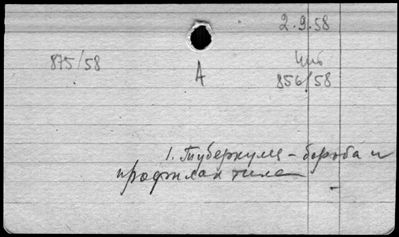 2.9.58
875/58
А
856/58
1. Туберкулз - борба и
профилактика